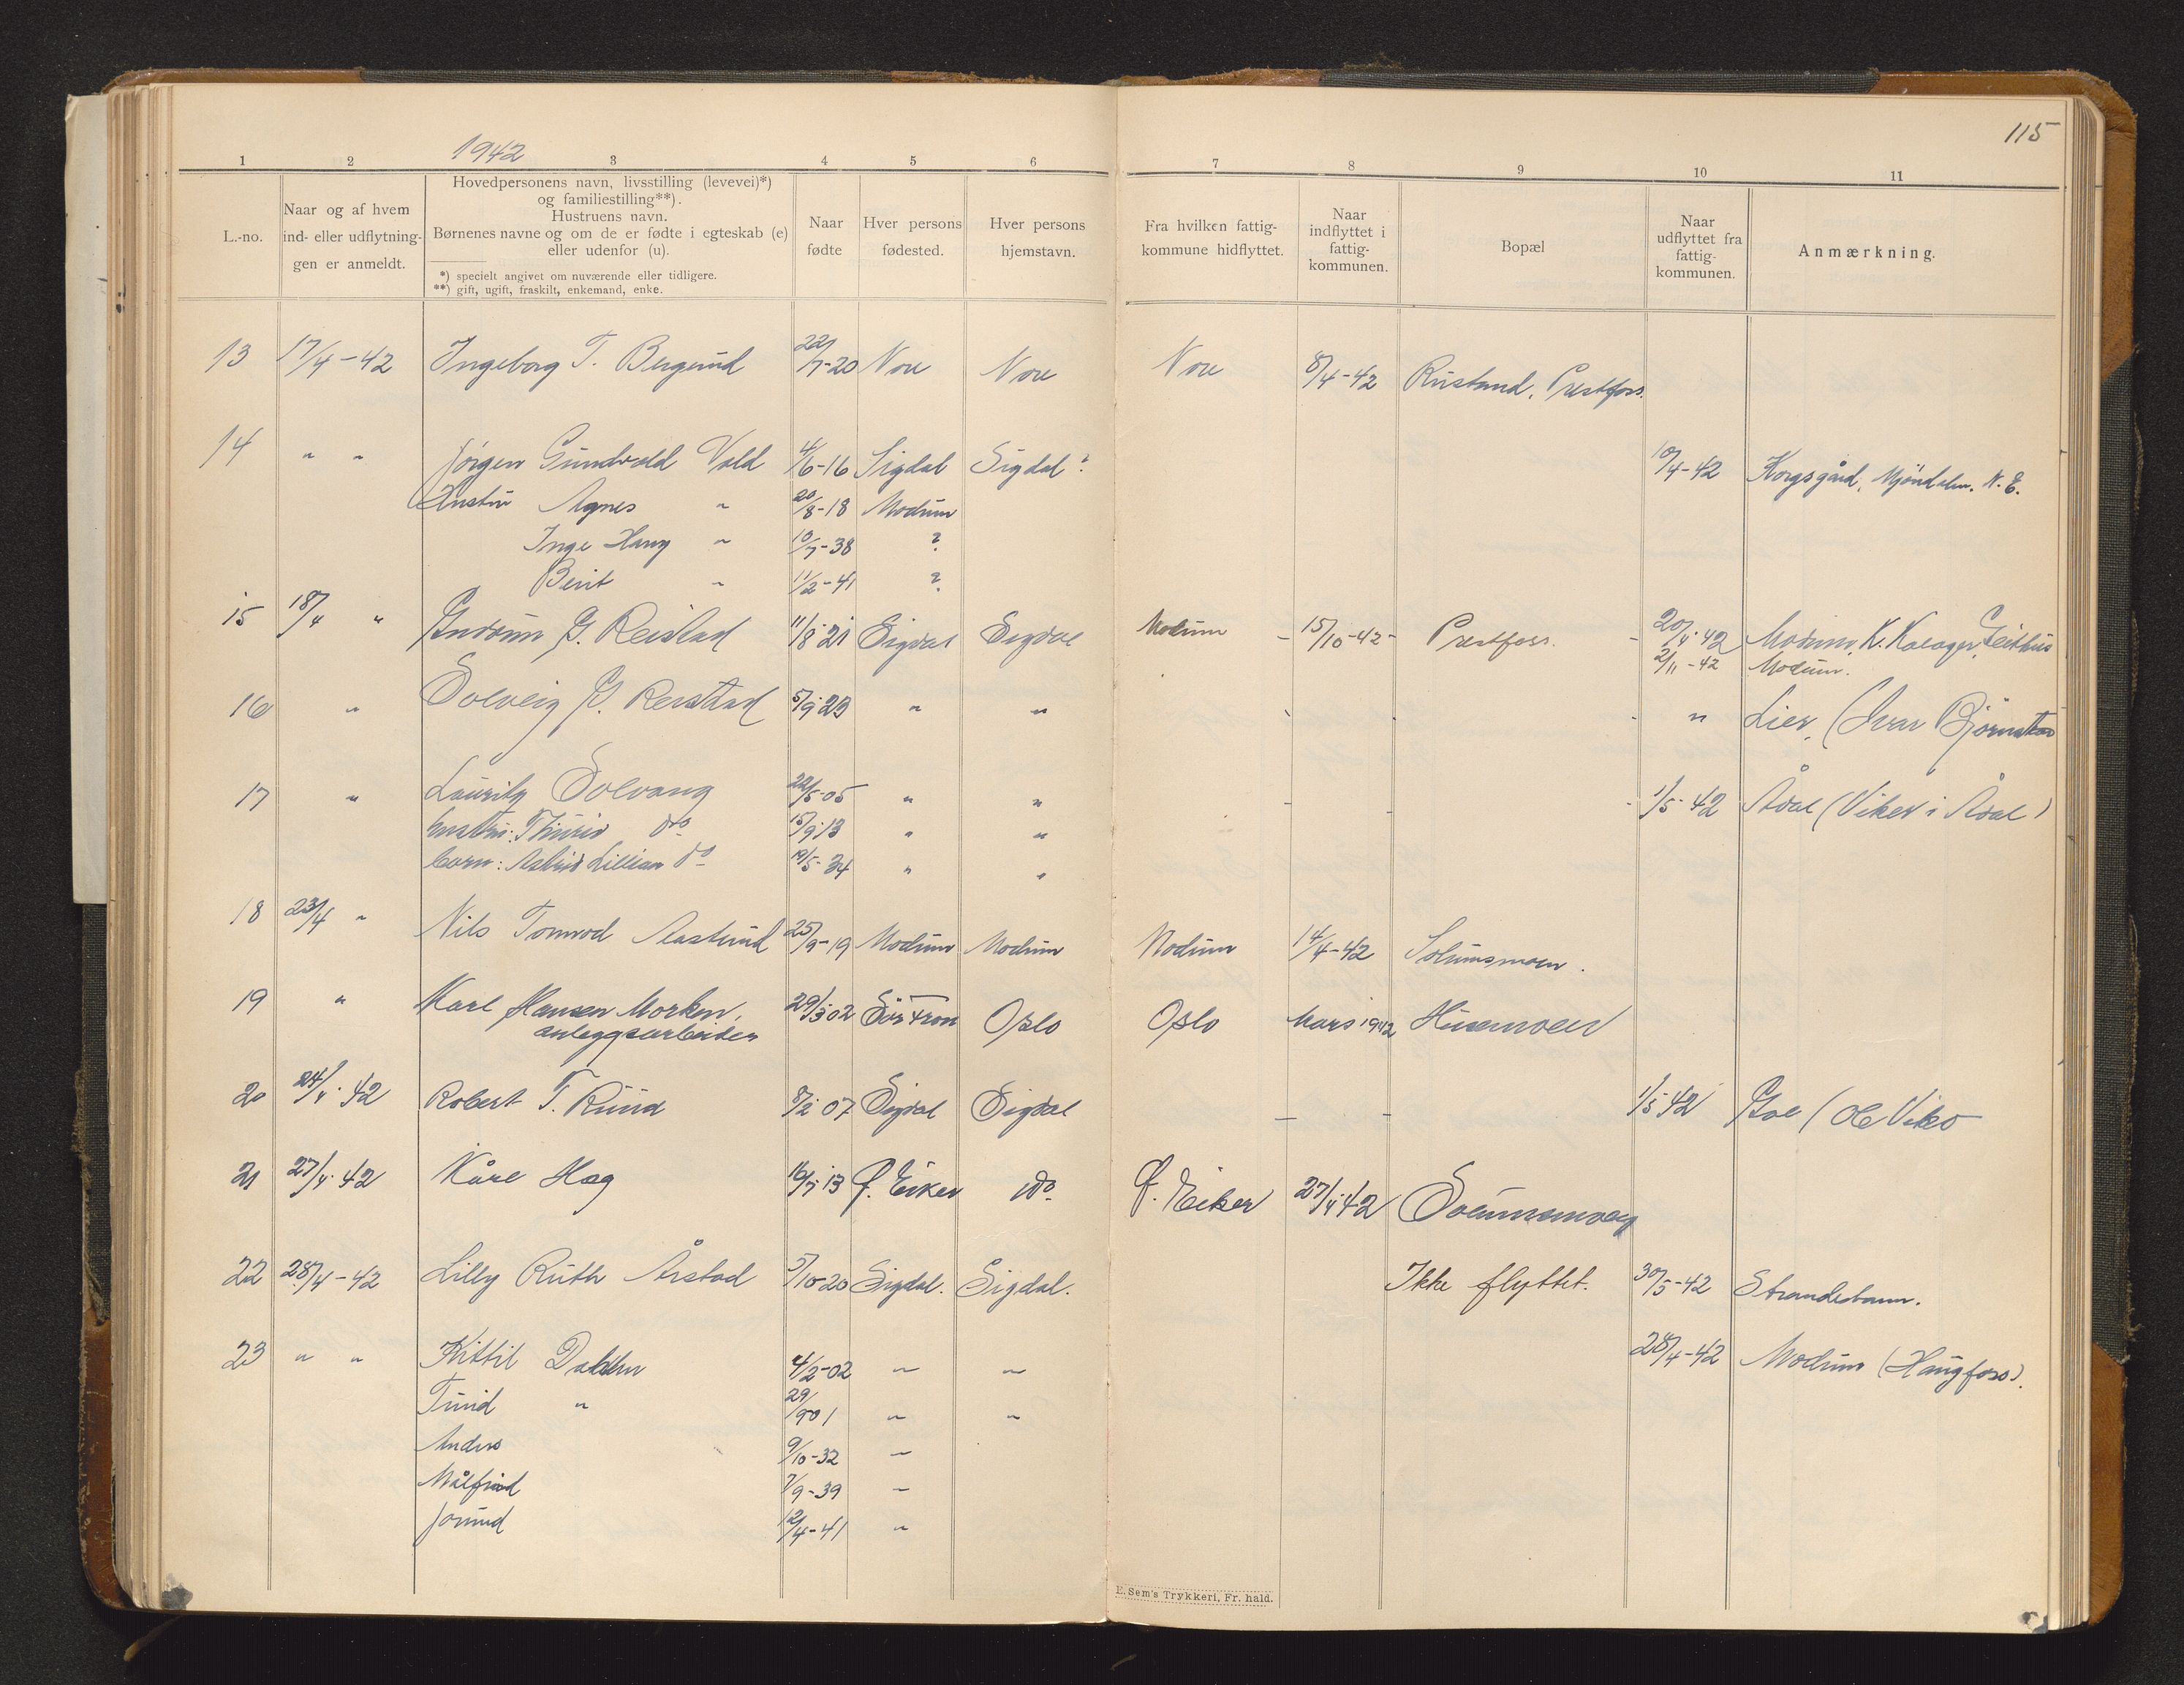 115
1942
1 2 3 4 5 6 7 8 9 10 11
L.-no.
Naar og af hvem
ind- eller udflytnin-
gen er anmeldt.
Hovedpersonens navn, livsstilling (levevei)*)
og familiestilling**).
Hustruens navn.
Børnenes navne og om de er fødte i egteskab (e)
eller udenfor (u).
*) specielt angivet om nuværende eller tidligere.
**) gift, ugift, fraskilt, enkemand, enke.
Naar
fødte
Hver persons
fødested.
Hver persons
hjemstavn.
Fra hvilken fattig-
kommune hidflyttet.
Naar
indflyttet i
fattig-
kommunen.
Bopæl
Naar
udflyttet fra
fattig-
kommunen.
Anmærkning.
13 17/4-42 Ingeborg T. Bergerud 22/7-20 Nore Nore Nore 8/4-42 Rustand, Prestfoss.
14 " " Jörgen Gundvald Vald 4/6-16 Sigdal Sigdal? 10/4-42 Korgsgård, Mjöndalen. N. E.
Hustru Agnes " 20/8-18 Modum
Inge Harry " 10/7-38 ?
Berit " 11/2-41 ?
15 18/4 " Gudrun G. Reistad 11/8-21 Sigdal Sigdal Modum - 15/10-42 - Prestfoss. - 20/4-42 Modum, K. Kalager, Geithus
2/11-42 Modum.
16 " Solveig G. Reistad 5/9-23 " " " Lier, (Ivar
17 " Lauritz Solvang 22/5-05 " " - - - 1/5-42 Ådal (Viker i Ådal)
hustru: Thurid do 15/9-13 " "
barn: Astrid Lillian do 19/5-34 " "
18 23/4 " Nils Tormod Aasterud 25/9-19 Modum Modum Modum 14/4-42 Solumsmoen.
19 " Karl Hansen Morken, 29/3-02 Sör Fron Oslo Oslo Mars 1942 Husemoen
anleggsarbeider
20 24/4-42 Robert T. Ruud 8/2-07 Sigdal Sigdal - - 1/5-42 Gol (Ole Viko
21 27/4-42 Kåre Hæg 16/7-13 Ø. Eiker do Ø. Eiker 27/4-42 Solumsmoen
22 28/4-42 Lilly Ruth Årstad 5/10-20 Sigdal. Sigdal. Ikke flyttet. 30/5-42 Strandebarm.
23 " " Kittil Dahlen 4/2-02 " " 28/4-42 Modum (Haugfoss).
Turid " 29/901 " "
Anders 9/10-32 "
Målfrid 7/9-39 "
Jorund 12/4-41 "
E. Sem's Trykkeri, Fr. hald.